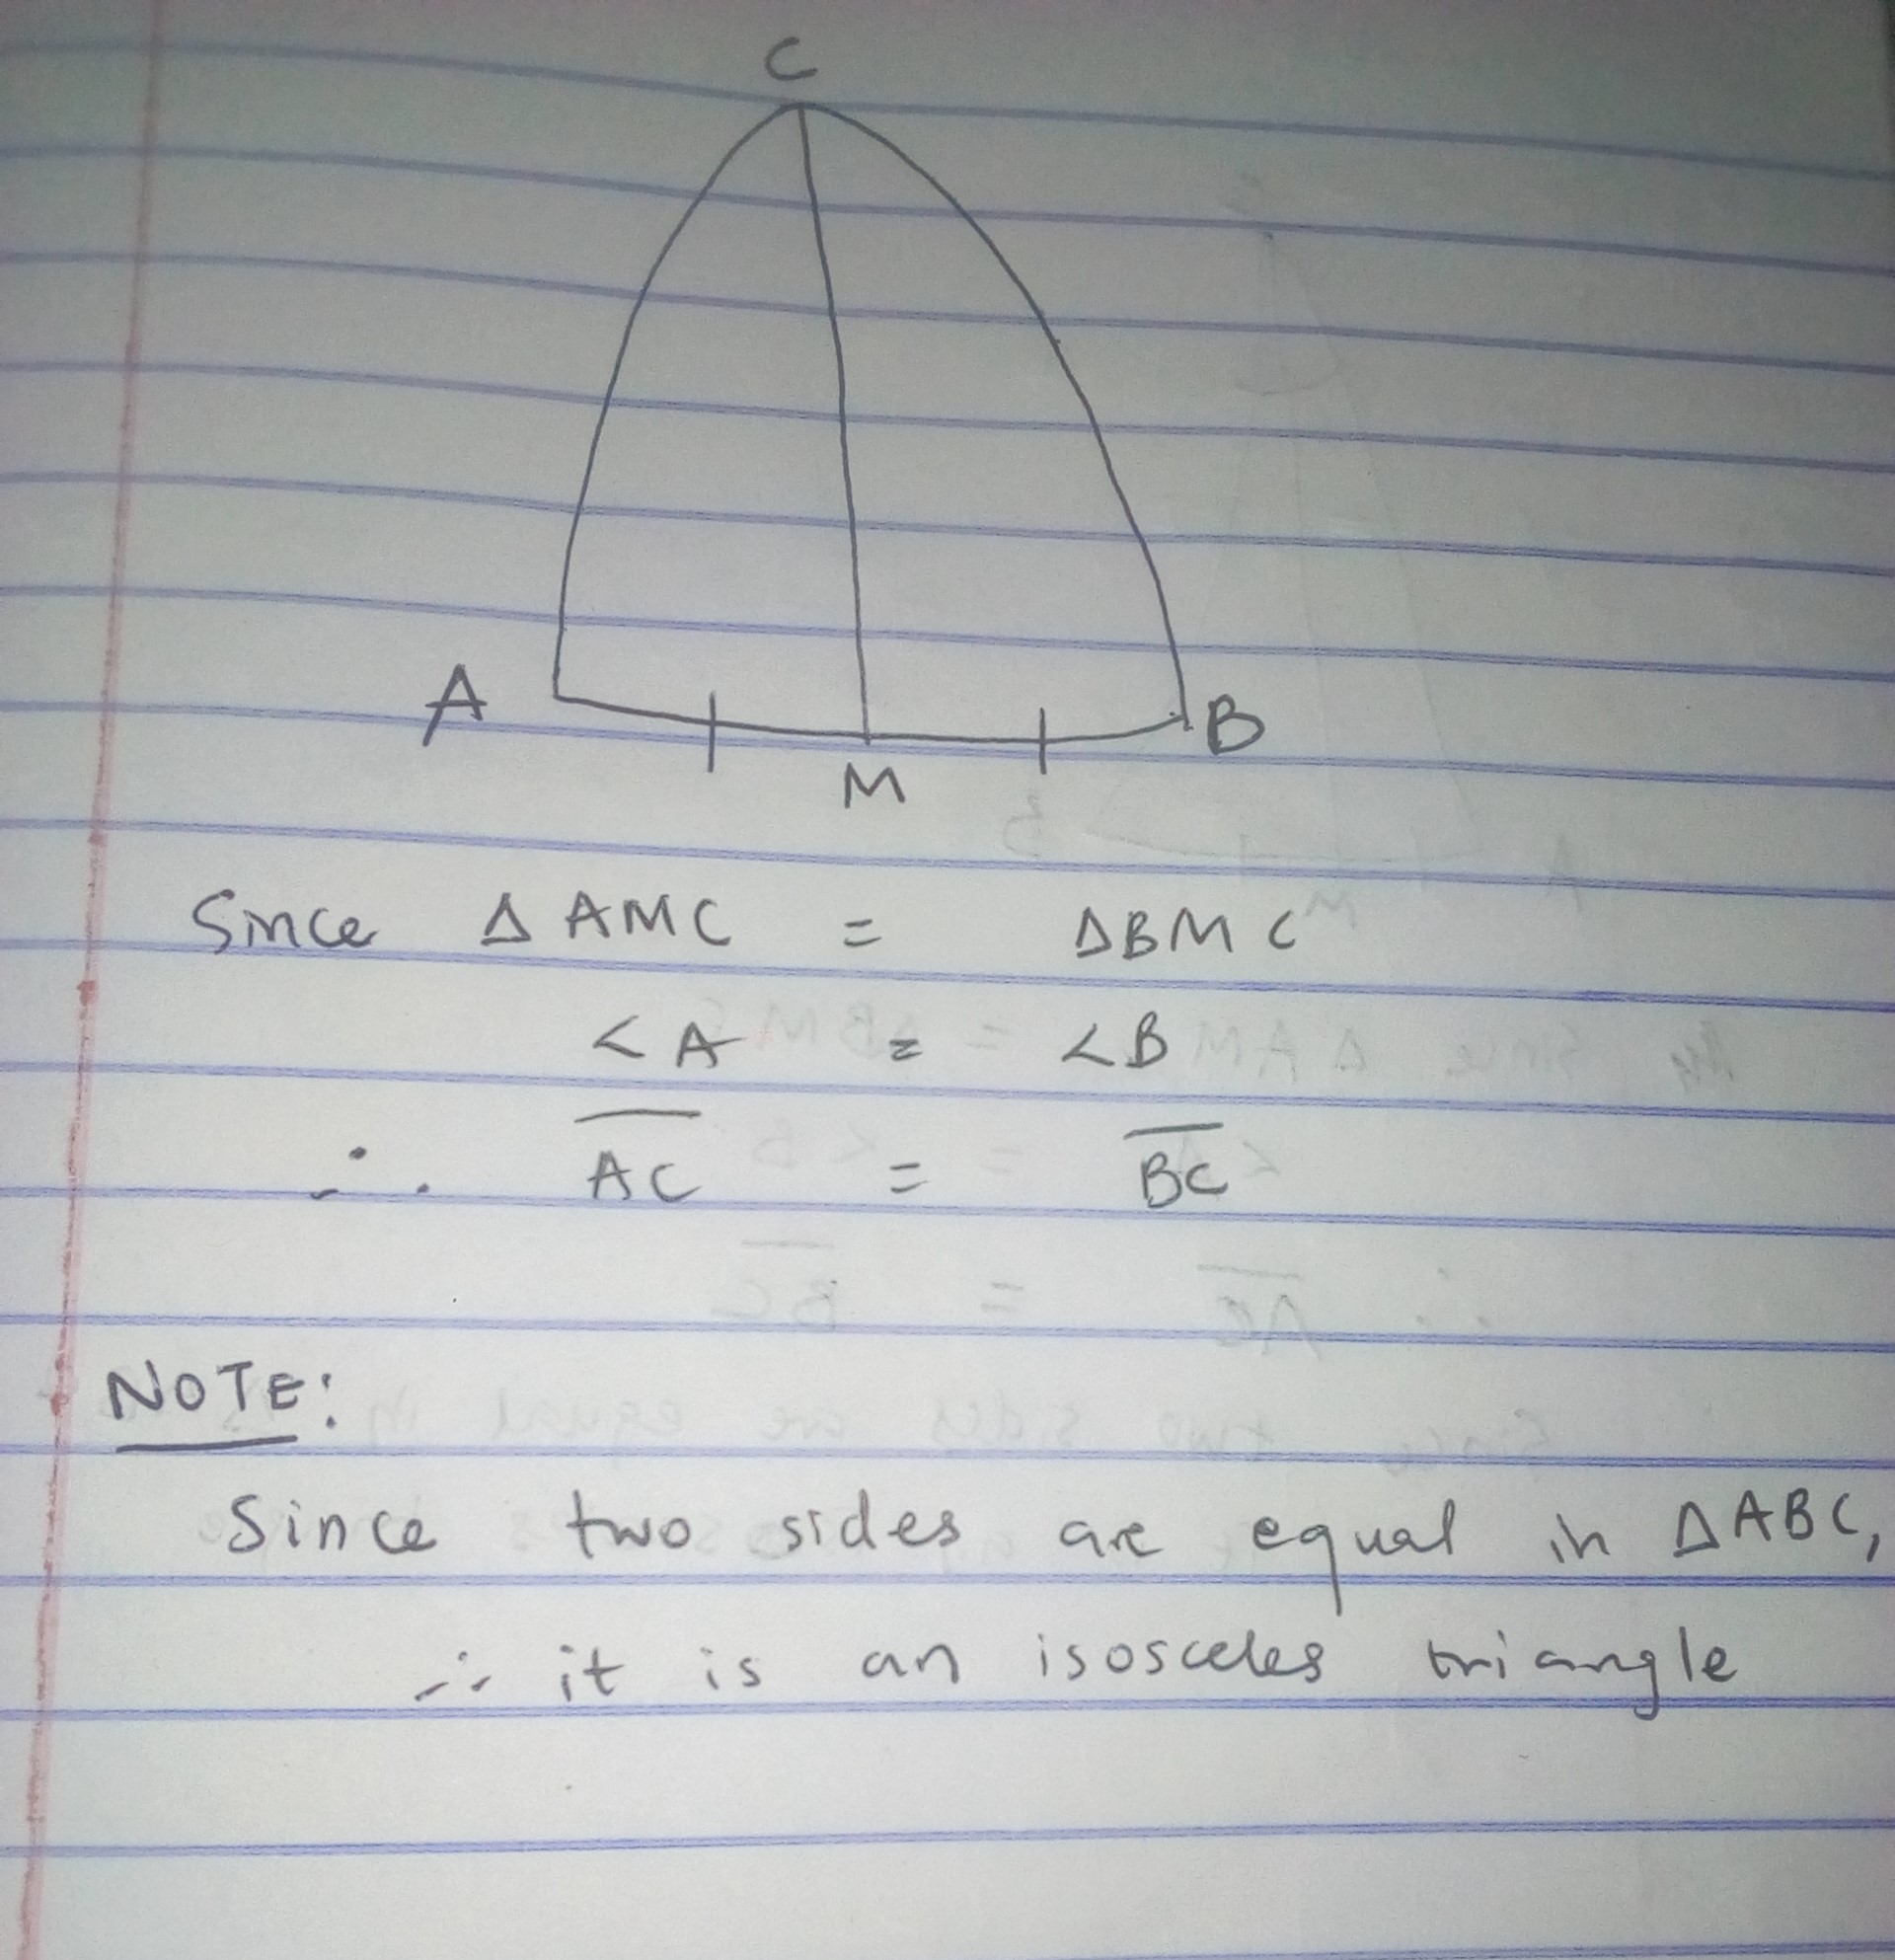 C
A
B
M
Since Δ AMC = ΔBMC
<A = <B
∴ A̅C̅ = B̅C̅
NOTE:
Since two sides are equal in ΔABC,
∴ it is an isosceles triangle